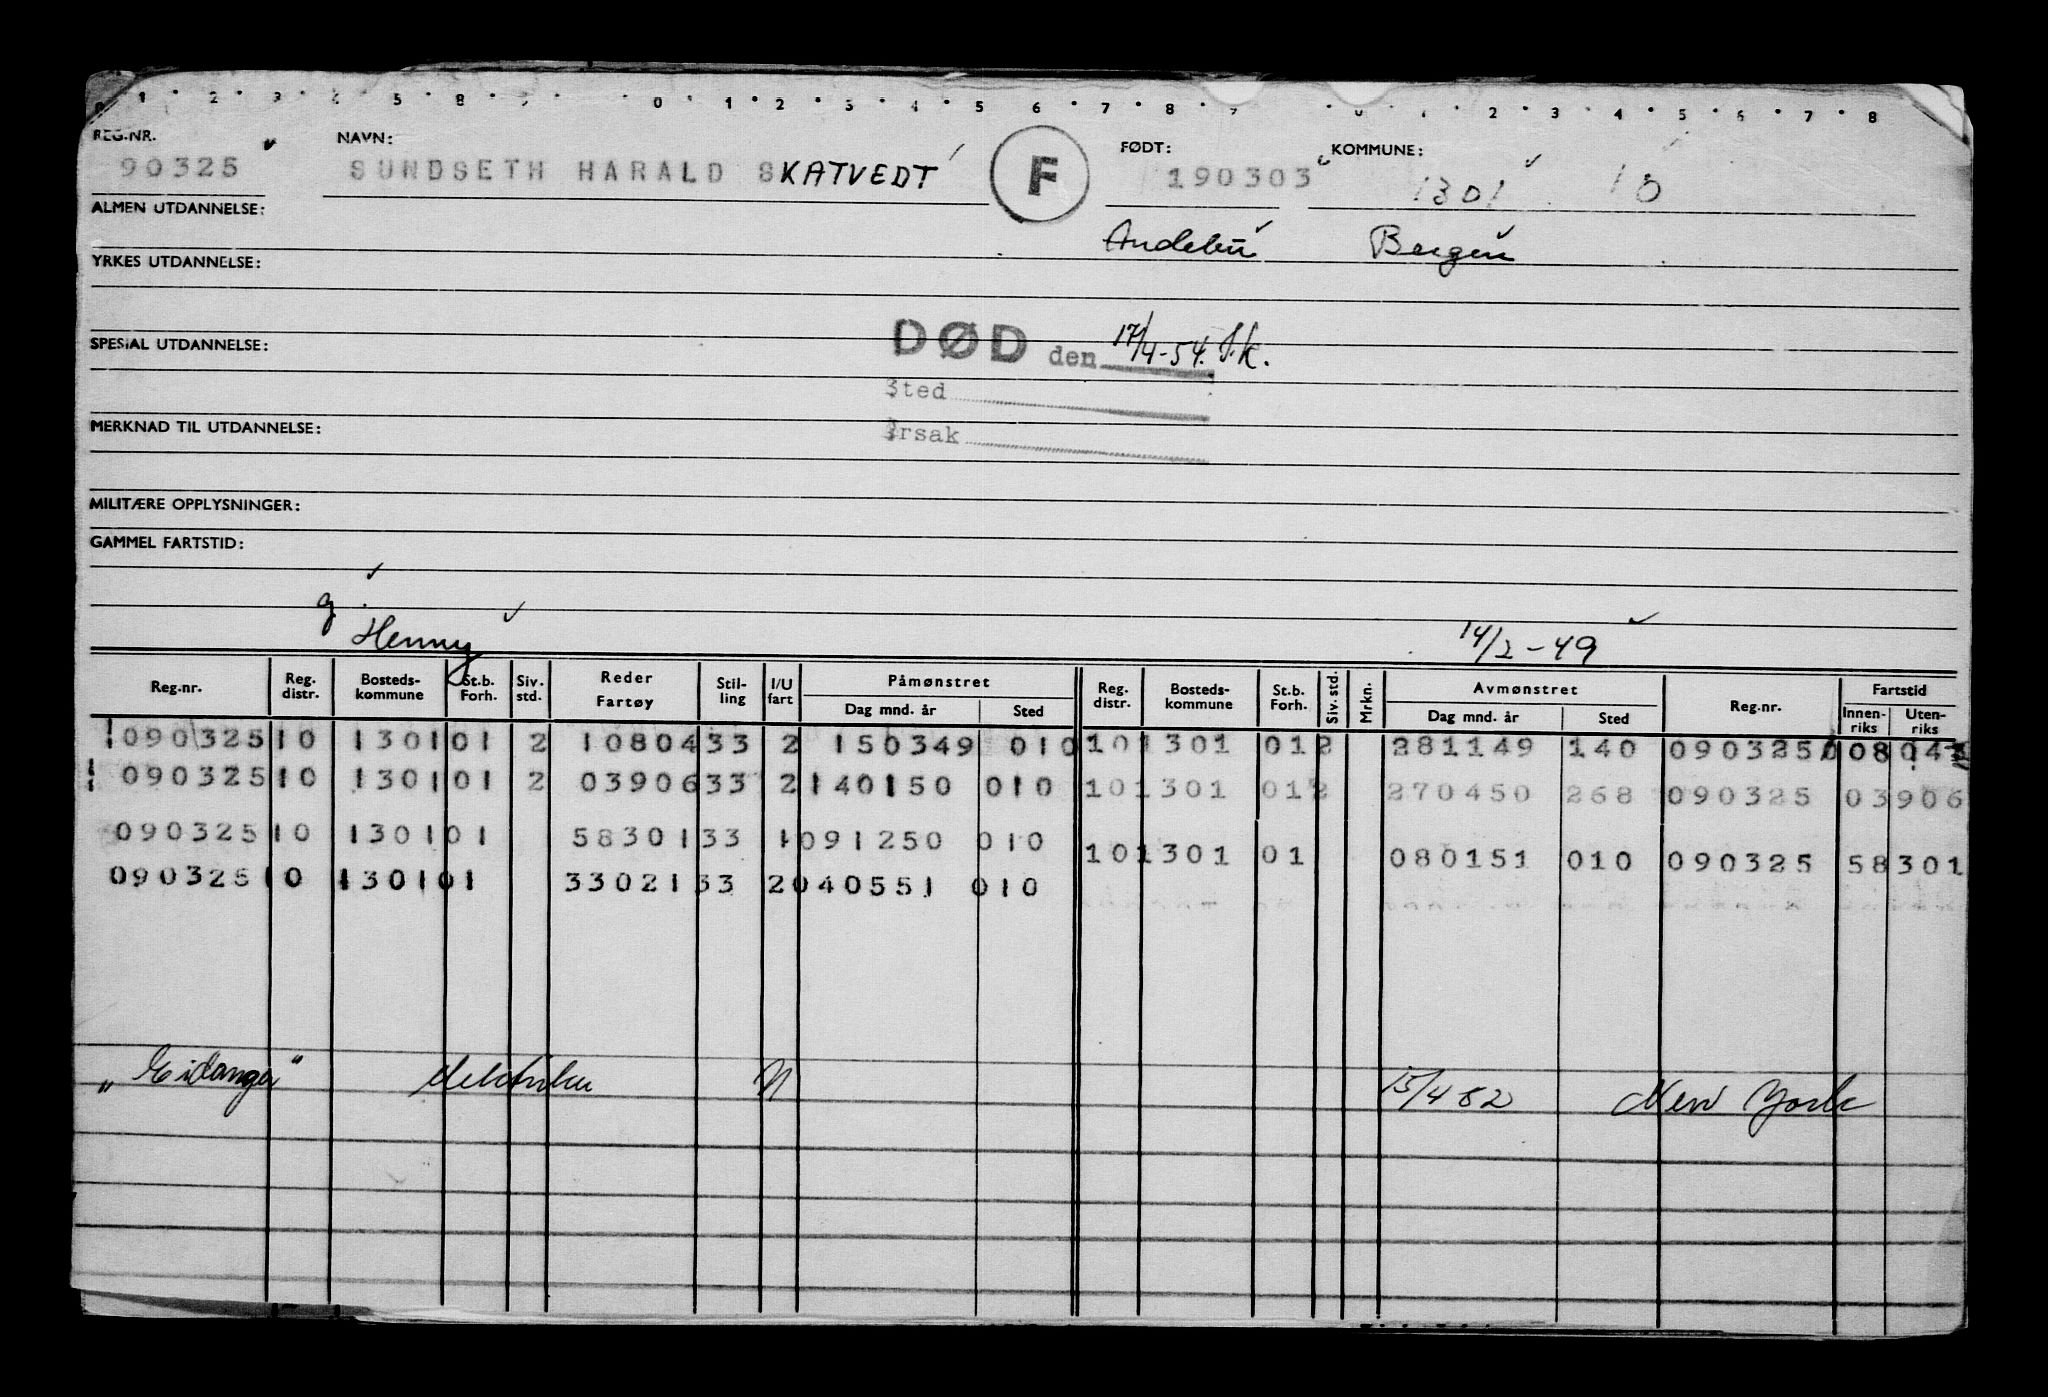 1 2 3 4 5 8 0 1 2 3 4 5 6 7 8 1 2 3 4 5 6 7 8
REG.NR. NAVN: FØDT: KOMMUNE:
90325 SUNDSETH HARALD SKATVEDT F 190303 1301 10
ALMEN UTDANNELSE:
Andebu Bergen
YRKES UTDANNELSE:
DØD den 17/4-54. S.k.
SPESIAL UTDANNELSE:
Sted
MERKNAD TIL UTDANNELSE:
Årsak
MILITÆRE OPPLYSNINGER:
GAMMEL FARTSTID:
g.
Henny 14/2-49
Reg.nr. Reg. distr. Bosteds-kommune St.b. Forh. Siv. std. Reder Fartøy Stil-ling I/U fart Påmønstret Dag mnd. år Sted Reg. distr. Bosteds-kommune St.b. Forh. Siv. std. Mrkn. Avmønstret Dag mnd. år Sted Reg.nr. Fartstid Innen-riks Uten-riks
090325 10 1301 01 2 10804 33 2 150349 010 10 1301 01 2 281149 140 090325 08 04
090325 10 1301 01 2 03906 33 2 140150 010 10 1301 01 2 270450 268 090325 03906
090325 10 1301 01 58301 33 1 091250 010 10 1301 01 080151 010 090325 58301
090325 10 1301 01 33021 33 2 040551 010
"Eidanger" elektriker N 15/4 52 New York